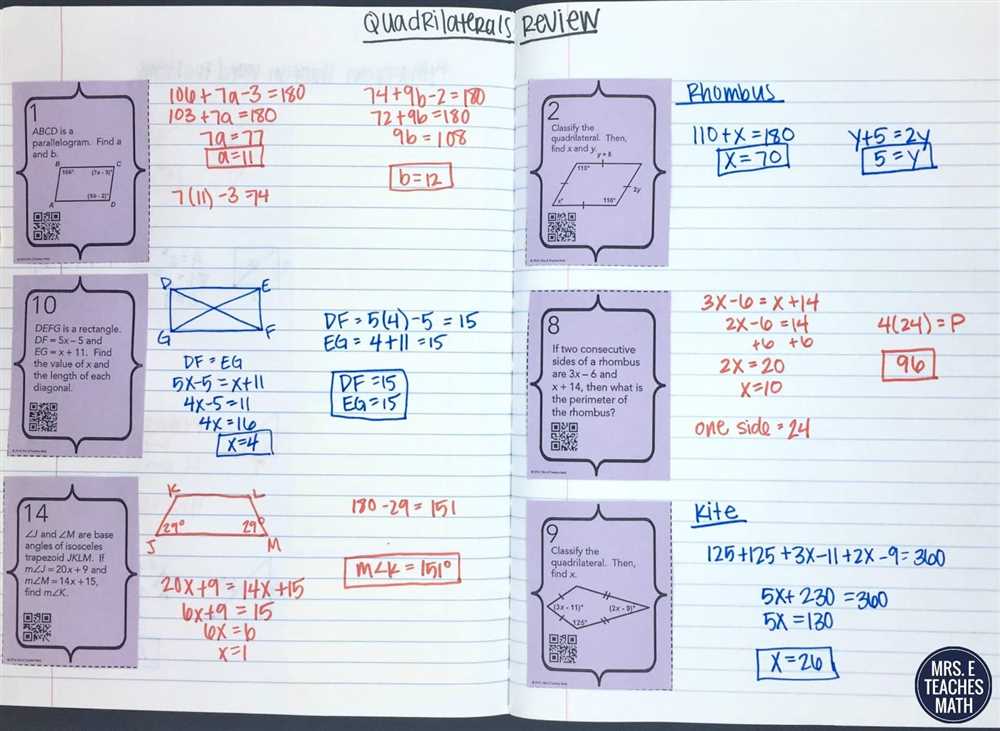 Quadrilaterals Review
1
ABCD is a
parallelogram. Find a
and b.
B
C
106°
(7a - 3)°
(9b - 2)°
A
D
106 + 7a - 3 = 180
103 + 7a = 180
7a = 77
a = 11
7(11) - 3 = 74
74 + 9b - 2 = 180
72 + 9b = 180
9b = 108
b = 12
10
DEFG is a rectangle.
DF = 5x – 5 and
EG = x + 11. Find
the value of x and
the length of each
diagonal.
D
E
G
F
DF = EG
5x - 5 = x + 11
4x - 5 = 11
4x = 16
x = 4
DF = 5(4) - 5 = 15
EG = 4 + 11 = 15
DF = 15
EG = 15
14
∠J and ∠M are base
angles of isosceles
trapezoid JKLM. If
m∠J = 20x + 9 and
m∠M = 14x + 15,
find m∠K.
K
L
29°
29°
J
M
20x + 9 = 14x + 15
6x + 9 = 15
6x = 6
x = 1
180 - 29 = 151
m∠K = 151°
2
Classify the
quadrilateral. Then,
find x and y.
y + 5
110°
2y
x°
110°
Rhombus
110 + x = 180
x = 70
y + 5 = 2y
5 = y
8
If two consecutive
sides of a rhombus
are 3x – 6 and
x + 14, then what is
the perimeter of
the rhombus?
3x - 6 = x + 14
2x - 6 = 14
+6 +6
2x = 20
x = 10
one side = 24
4(24) = P
96
9
Classify the
quadrilateral. Then,
find x.
(3x - 11)°
(2x - 9)°
125°
Kite
125 + 125 + 3x - 11 + 2x - 9 = 360
5x + 230 = 360
5x = 130
x = 26
MRS. E
TEACHES
MATH